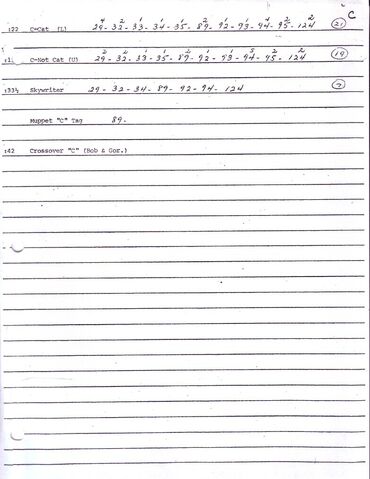 C
:22 C=Cat (L) 29- 32- 33- 34- 35- 89- 92- 93- 94- 95- 124 (21)
C=Not Cat (U) 29- 32- 33- 35- 89- 92- 93- 94- 95- 124 (19)
:33½ Skywriter 29- 32- 34- 89- 92- 94- 124
Muppet "C" Tag 89-
:42 Crossover "C" (Bob & Gor.)